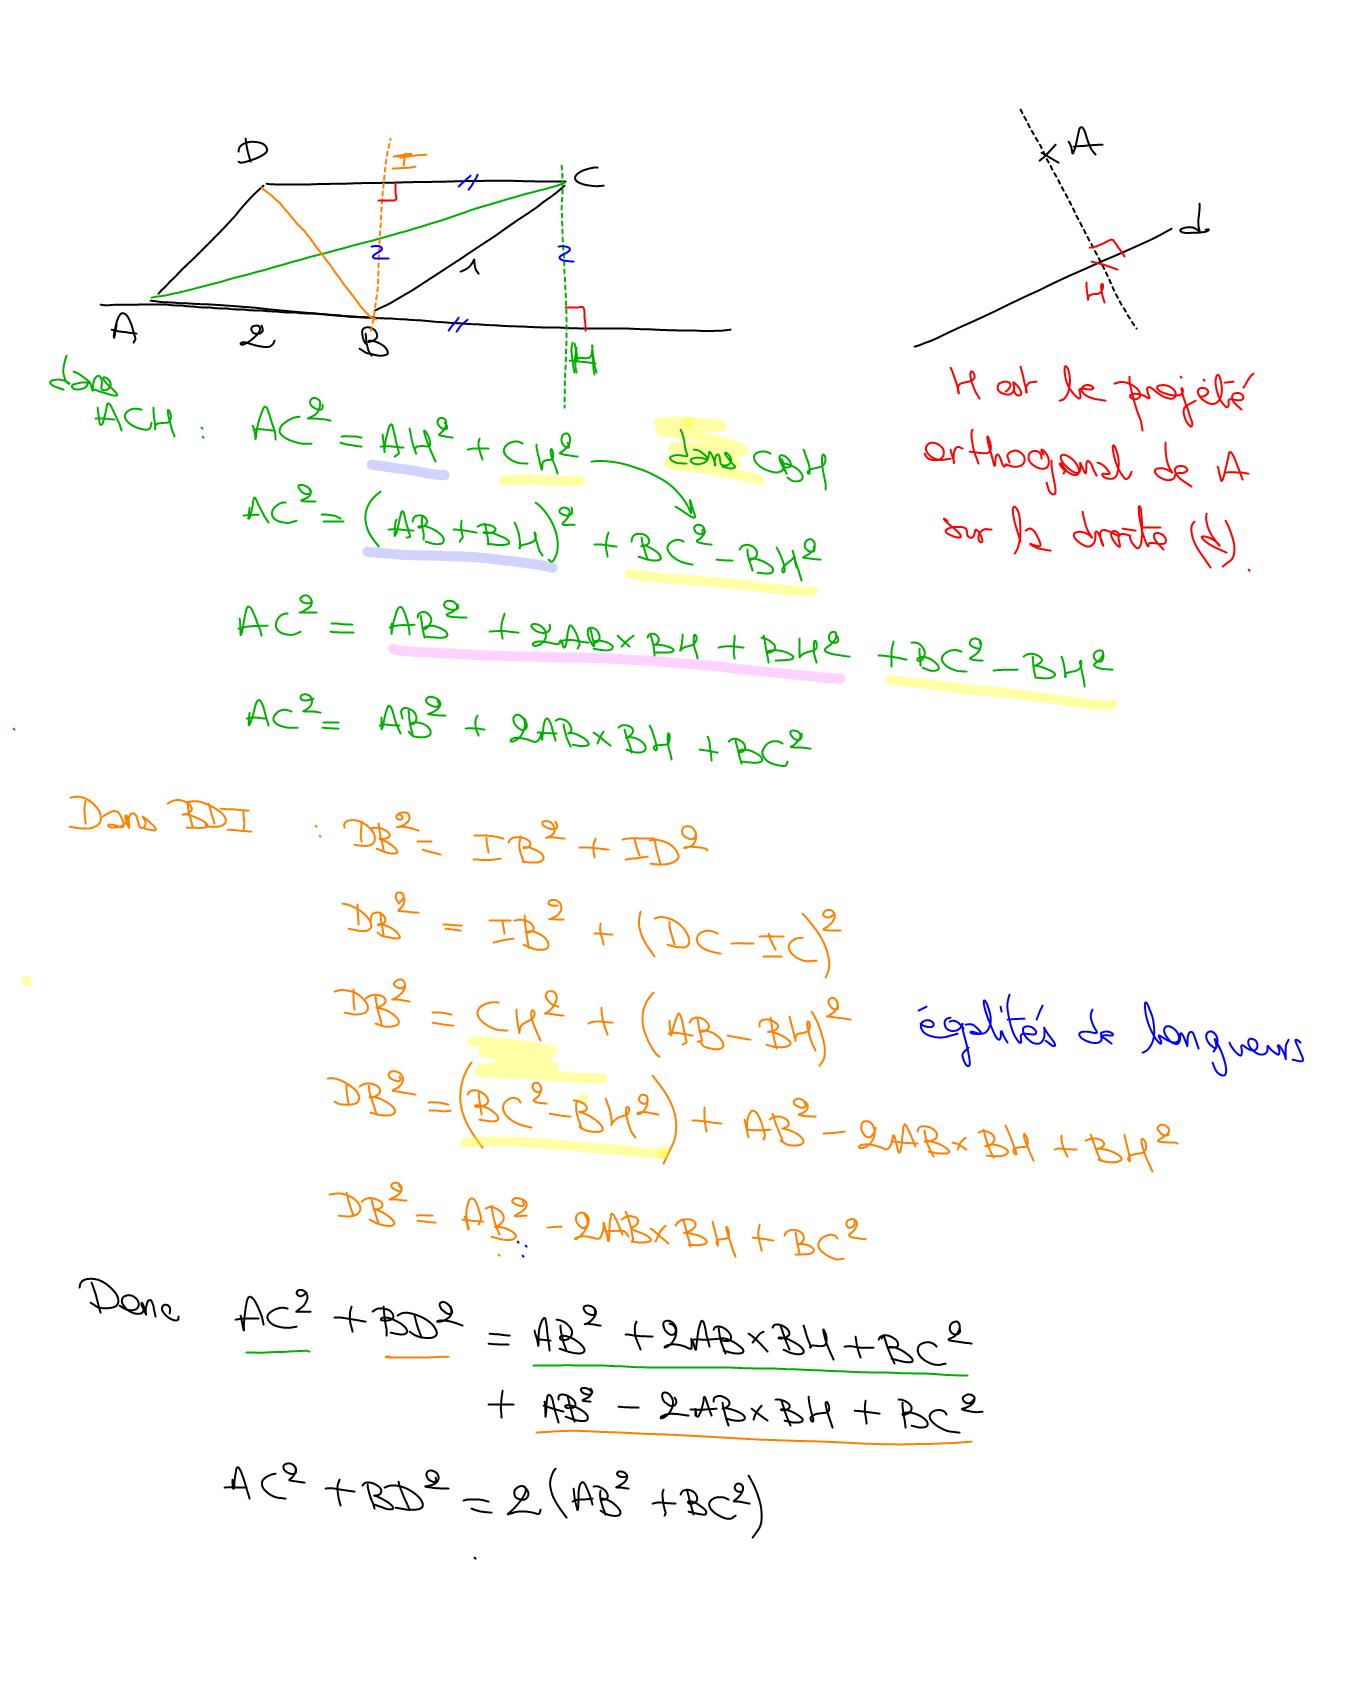 D
I
C
A
2
B
1
H
2
2
A
d
H
H est le projeté
orthogonal de A
sur la droite (d).
dans
ACH : AC² = AH² + CH²
dans CBH
AC² = (AB+BH)² + BC² - BH²
AC² = AB² + 2AB×BH + BH² + BC² - BH²
AC² = AB² + 2AB×BH + BC²
Dans BDI : DB² = IB² + ID²
DB² = IB² + (DC-IC)²
DB² = CH² + (AB-BH)² égalités de longueurs
DB² = (BC²-BH²) + AB² - 2AB×BH + BH²
DB² = AB² - 2AB×BH + BC²
Donc AC² + BD² = AB² + 2AB×BH + BC²
+ AB² - 2AB×BH + BC²
AC² + BD² = 2(AB² + BC²)